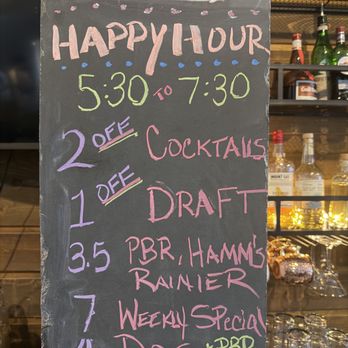 HAPPY HOUR
5:30 TO 7:30
2 OFF COCKTAILS
1 OFF DRAFT
3.5 PBR, HAMM'S
RAINIER
7 WEEKLY SPECIAL
+ PBR